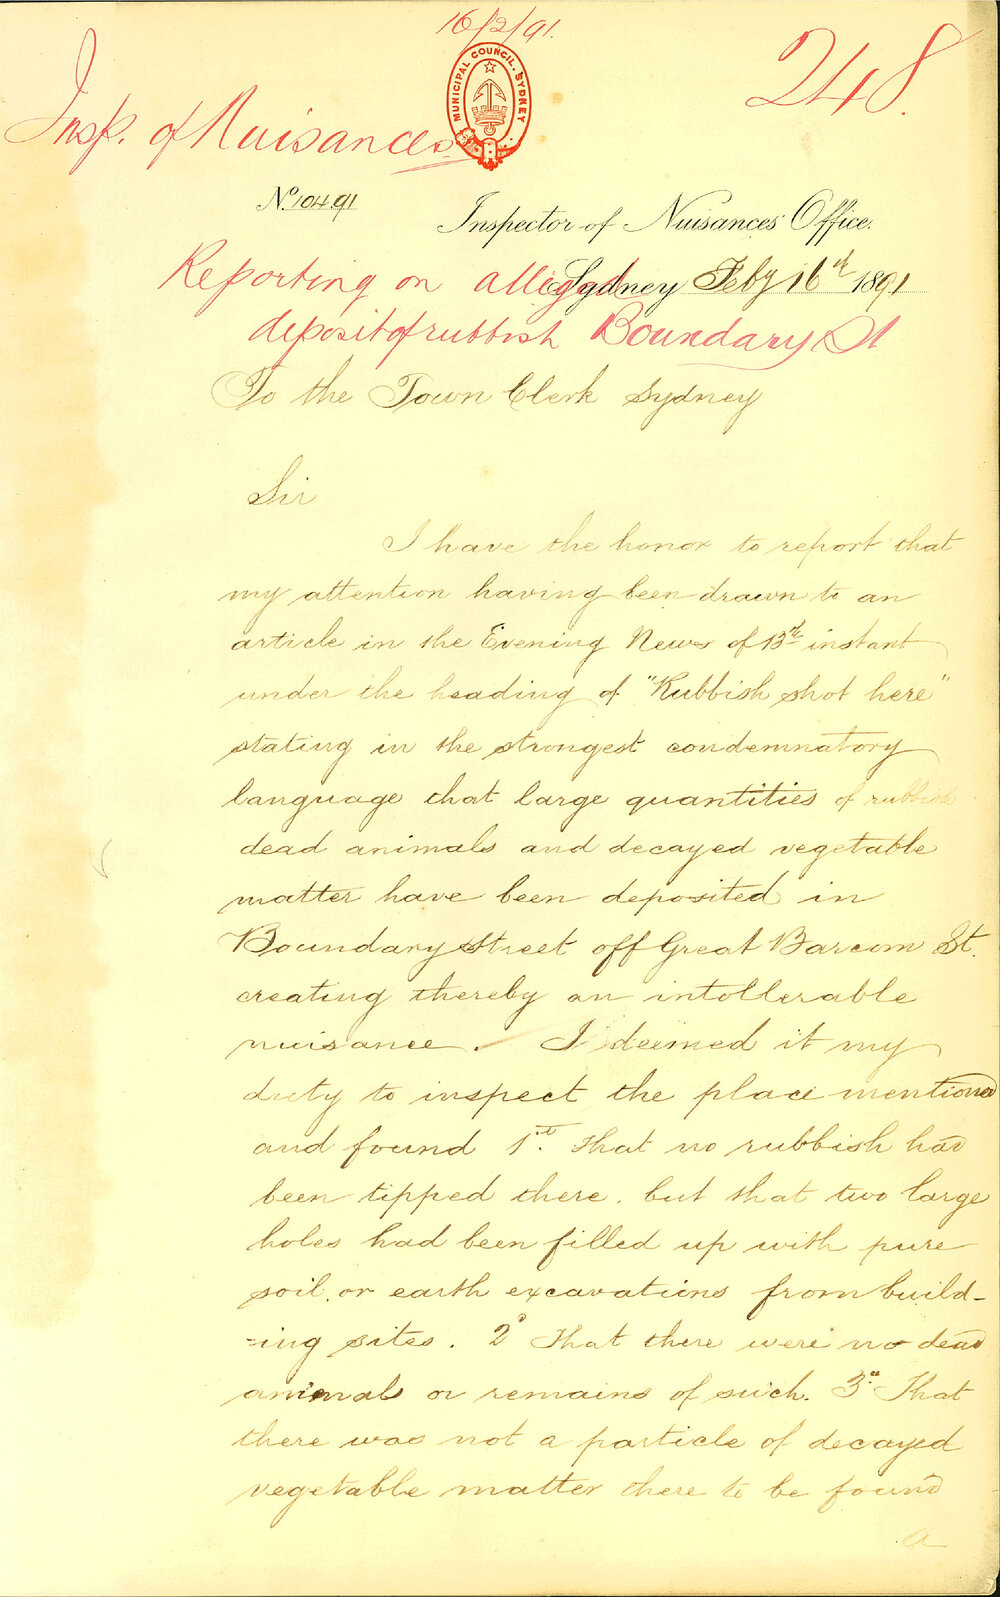 16/2/91.
248.
MUNICIPAL COUNCIL. SYDNEY
Insp. of Nuisances
No. 104.91
Inspector of Nuisances' Office.
Reporting on alleged
Sydney Feby 16th 1891
deposit of rubbish Boundary St
To the Town Clerk Sydney
Sir
I have the honor to report that
my attention having been drawn to an
article in the Evening News of 13th instant
under the heading of "Rubbish shot here"
stating in the strongest condemnatory
language that large quantities of rubbish
dead animals and decayed vegetable
matter have been deposited in
Boundary Street off Great Barcom St.
creating thereby an intollerable
nuisance. I deemed it my
duty to inspect the place mentioned
and found 1st. That no rubbish had
been tipped there. but that two large
holes had been filled up with pure
soil, or earth excavations from build-
=ing sites. 2o That there were no dead
animals or remains of such. 3o That
there was not a particle of decayed
vegetable matter there to be found
a